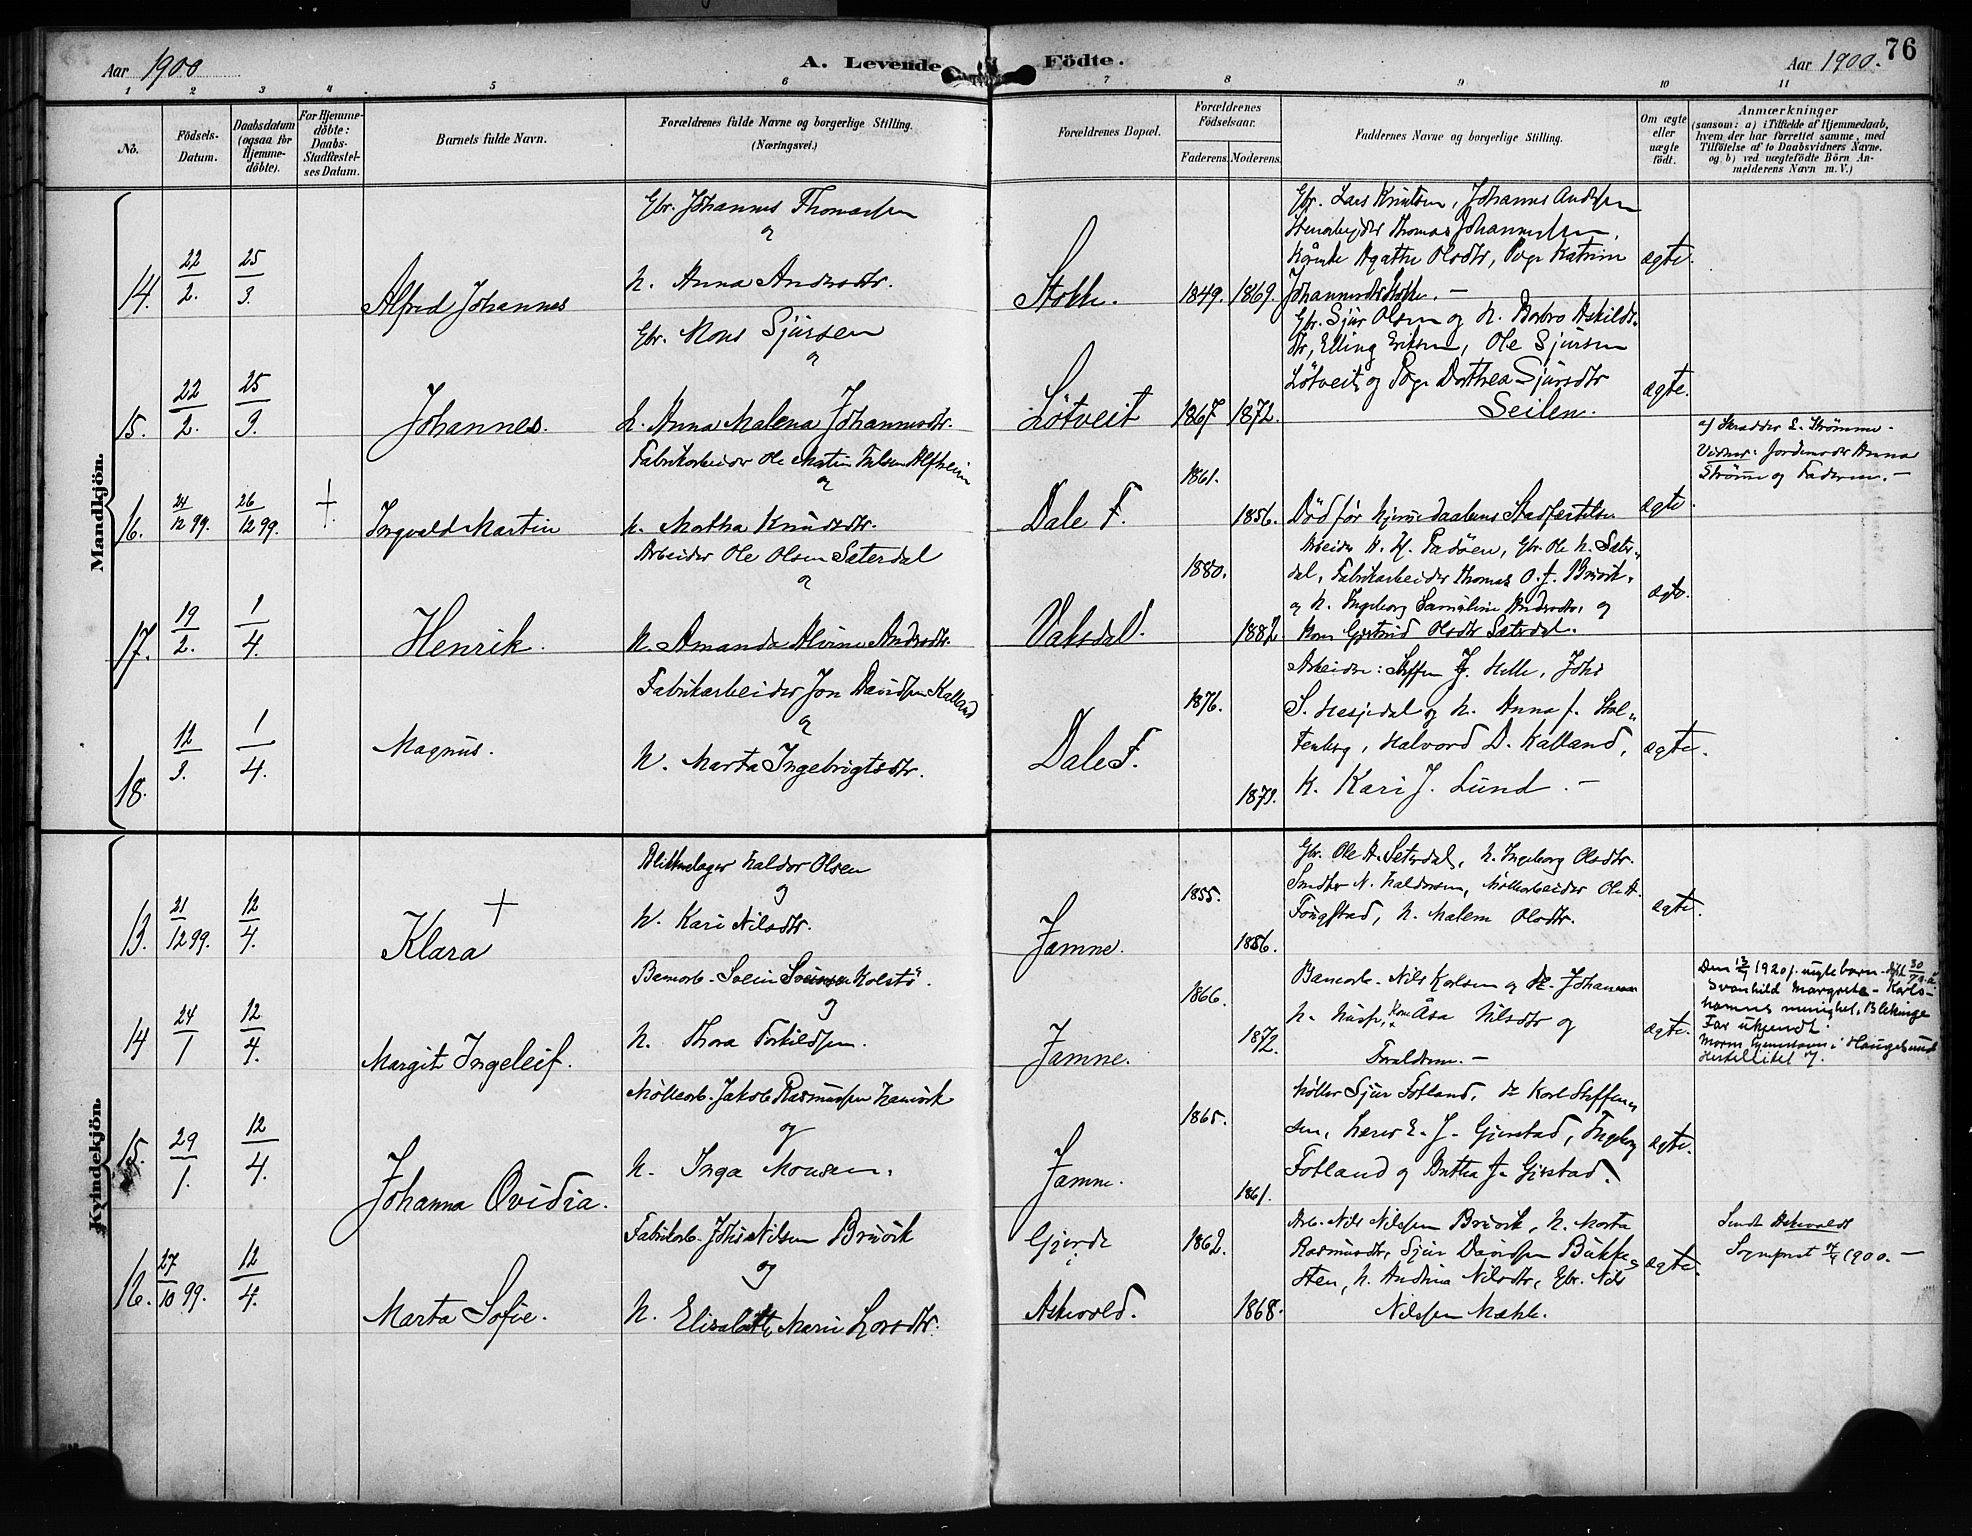 76
Aar 1900
A. Levende Födte.
Aar 1900.
1 2 3 4 5 6 7 8 9 10 11
No.
Födsels-Datum.
Daabsdatum (ogsaa for Hjemme-döbte).
For Hjemme-döbte: Daabs-Stadfæstel-ses Datum.
Barnets fulde Navn.
Forældrenes fulde Navne og borgerlige Stilling.
(Næringsvei.)
Forældrenes Bopæl.
Forældrenes Födselsaar.
Faderens. Moderens.
Faddernes Navne og borgerlige Stilling.
Om ægte eller uægte födt.
Anmærkninger
(saasom: a) i Tilfælde af Hjemmedaab,
hvem der har forrettet samme, med
Tilföielse af to Daabsvidners Navne.
og b) ved uægtefödte Börn An-
melderens Navn m. V.)
Mandkjön.
14. 22/2. 25/3. Alfred Johannes
Gbr. Johannes Thomassen
og
H. Anna Andersdtr.
Stokke. 1849. 1869.
Gbr. Lars Knutsen, Johannes Andersen
Stenarbeyder Thomas Johannessen,
Kårenke Agathe Olsdtr, Pige Katrine
Johannesdtr Stokke. —
ægte.
15. 22/2. 25/3. Johannes.
Gbr. Mons Sjursen
og
H. Anna Malena Johannesdtr.
Løtveit 1867 1872.
Gbr. Sjur Olsen og H. Barbro Askilds-
dtr, Elling Eriksen, Ole Sjursen
Løtveit, og Pige Dorthea Sjursdtr
Seilen.
ægte.
16. 21/12 99. 26/12 99. +. Ingvald Martin
Fabrikarbeider Ole Martin Nilsen Alfheim
og
H. Martha Knudsdtr.
Dale F. 1861. 1856.
Død før hjemmedaabens Stadfæstelse
ægte.
af Skrædder L. Strømme.
Vidner: Jordmoder Anna
Strømme og Faderen. —
17. 19/2. 1/4. Henrik.
Arbeider Ole Olsen Sæterdal
og
H. Amanda Alvine Andersdtr.
Vaksdal. 1880. 1882
Arbeider H. H. Padøen, Gbr. Ole N. Sæter-
dal, Fabrikarbeider Thomas O. f. Bruvik,
og H. Ingeborg Samueline Andersdtr. og
Kone Gjertrud Olsdtr Sæterdal.
ægte.
18. 12/3. 1/4. Magnus.
Fabrikarbeider Jon Davidsen Kalland
og
H. Marta Ingebrigtsdtr.
Dale F. 1876. 1873.
Arbeidere: Steffen J. Helle, Johs
S. Hesjedal og H. Anna f. Stol-
tenberg, Halvord D. Kalland,
K. Kari J. Lund. —
ægte.
Kvindekjön.
13. 21/12 99. 12/4. Klara +
Blikkenslager Haldor Olsen
og
H. Kari Nilsdtr.
Jamne. 1855. 1856.
Gbr. Ole A. Seterdal, H. Ingeborg Olsdtr.
Smedker N. Haldorsen, Møllearbeider Ole A.
Fougstad, H. Malene Olsdtr.
ægte.
14 24/1 12/4. Margit Ingeleif.
Banearb. Svein Kolstø.
og
H. Thora Torkildsen.
Jamne. 1866. 1872.
Banearb. Nils Karlsen og do. Johannes
H. Kone Åsa Nilsdtr og
Forældrene. —
ægte.
Den 13/7 1920 f. uegte barn - døbt 30/10 s.å.
Svanhild Margrete - Karls-
hamns menighet, Blekinge
Far ukjendt.
Morens hjemstavn: Haugesund
15. 29/1. 12/4. Johanna Ovidia.
Møllearb. Jakob Rasmussen Hamvik
og
H. Inga Monsen.
Jamne. 1865. 1861.
Møller Sjur Fotland, do Karl Steffen-
sen, Lærer E. J. Gjerstad, Ingeborg
Fotland og Brita J. Gjerstad.
ægte.
16. 27/10 99. 12/4. Marta Sofie.
Fabrikarb. Johs Nilsen Bruvik
og
H. Elisabeth Marie Larsdtr.
Gjerde
i
Askevold. 1862. 1868.
Arb. Nils Nilssen Bruvik, H. Marta
Rasmusdtr, Sjur Davidsen Bukke-
sten, H. Andrina Nilsdtr, Gbr. Nils
Nilssen Mæhle.
ægte.
Sendt Askevolds
Sognepræst 1900. —